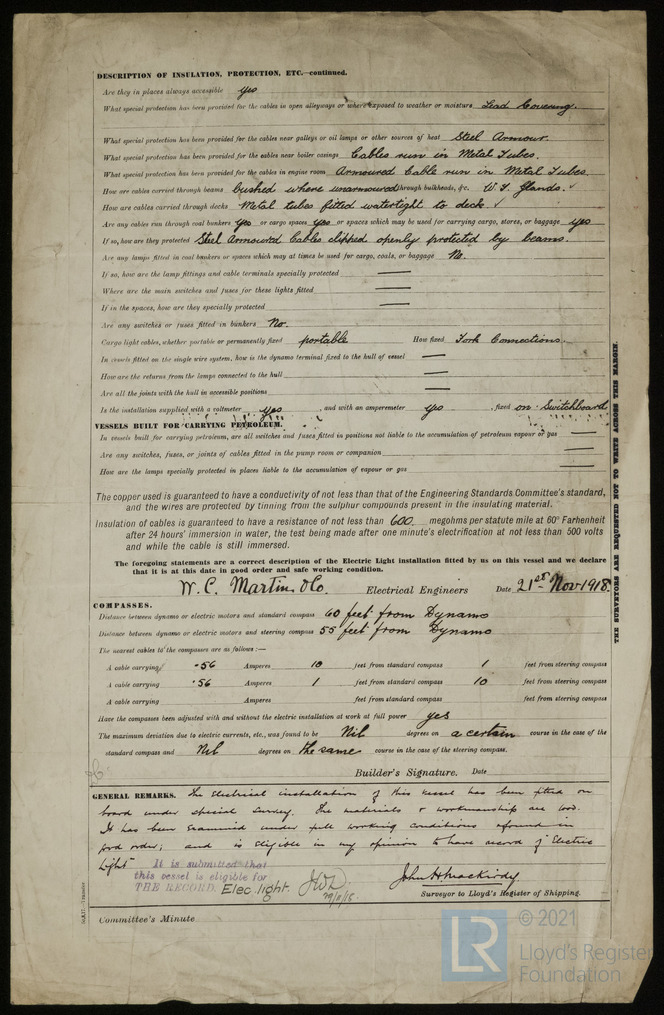 DESCRIPTION OF INSULATION, PROTECTION, ETC.—continued.
Are they in places always accessible yes
What special protection has been provided for the cables in open alleyways or where exposed to weather or moisture Lead Covering.
What special protection has been provided for the cables near galleys or oil lamps or other sources of heat Steel Armour.
What special protection has been provided for the cables near boiler casings Cables run in Metal Tubes.
What special protection has been provided for the cables in engine room Armoured Cable run in Metal Tubes.
How are cables carried through beams bushed where unarmoured through bulkheads, &c. W.T. Glands. ✓
How are cables carried through decks Metal tubes fitted watertight to deck ✓
Are any cables run through coal bunkers yes or cargo spaces yes or spaces which may be used for carrying cargo, stores, or baggage yes
If so, how are they protected Steel Armoured Cables clipped openly protected by beams.
Are any lamps fitted in coal bunkers or spaces which may at times be used for cargo, coals, or baggage No.
If so, how are the lamp fittings and cable terminals specially protected —
Where are the main switches and fuses for these lights fitted —
If in the spaces, how are they specially protected —
Are any switches or fuses fitted in bunkers No.
Cargo light cables, whether portable or permanently fixed portable How fixed Fork Connections.
In vessels fitted on the single wire system, how is the dynamo terminal fixed to the hull of vessel —
How are the returns from the lamps connected to the hull —
Are all the joints with the hull in accessible positions —
Is the installation supplied with a voltmeter yes , and with an amperemeter yes , fixed on Switchboard
VESSELS BUILT FOR CARRYING PETROLEUM.
In vessels built for carrying petroleum, are all switches and fuses fitted in positions not liable to the accumulation of petroleum vapour or gas —
Are any switches, fuses, or joints of cables fitted in the pump room or companion —
How are the lamps specially protected in places liable to the accumulation of vapour or gas —
The copper used is guaranteed to have a conductivity of not less than that of the Engineering Standards Committee's standard,
and the wires are protected by tinning from the sulphur compounds present in the insulating material.
Insulation of cables is guaranteed to have a resistance of not less than 600 megohms per statute mile at 60° Farhenheit
after 24 hours' immersion in water, the test being made after one minute's electrification at not less than 500 volts
and while the cable is still immersed.
The foregoing statements are a correct description of the Electric Light installation fitted by us on this vessel and we declare
that it is at this date in good order and safe working condition.
W. C. Martin & Co. Electrical Engineers Date 21st Nov 1918.
COMPASSES.
Distance between dynamo or electric motors and standard compass 60 feet from Dynamo
Distance between dynamo or electric motors and steering compass 55 feet from Dynamo
The nearest cables to the compasses are as follows:—
A cable carrying .56 Amperes 10 feet from standard compass 1 feet from steering compass
A cable carrying .56 Amperes 1 feet from standard compass 10 feet from steering compass
A cable carrying Amperes feet from standard compass feet from steering compass
Have the compasses been adjusted with and without the electric installation at work at full power yes
The maximum deviation due to electric currents, etc., was found to be Nil degrees on a certain course in the case of the
standard compass and Nil degrees on the same course in the case of the steering compass.
Builder's Signature. Date
GENERAL REMARKS. The Electrical installation of this vessel has been fitted on
board under special survey. The materials & workmanship are good.
It has been examined under full working conditions & found in
good order; and is eligible in my opinion to have record of Electric
Light
It is submitted that
this vessel is eligible for
THE RECORD. Elec. light.
29/11/18.
Surveyor to Lloyd's Register of Shipping.
Committee's Minute
THE SURVEYORS ARE REQUESTED NOT TO WRITE ACROSS THIS MARGIN.
LR
© 2021
Lloyd's Register
Foundation